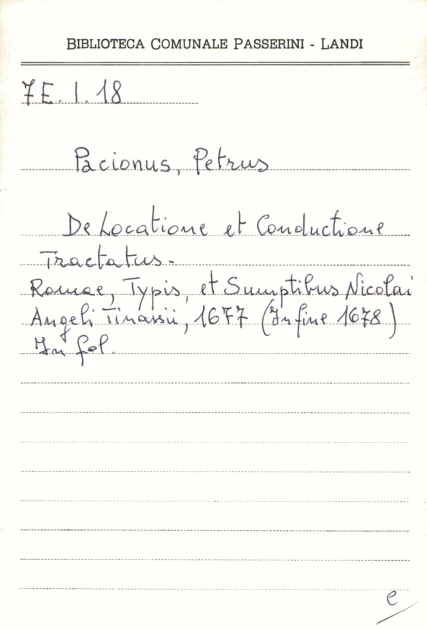 BIBLIOTECA COMUNALE PASSERINI - LANDI
7E. I. 18
Pacionus, Petrus
De Locatione et Conductione
Tractatus -
Romae, Typis, et Sumptibus Nicolai
Angeli Tinassii, 1677 (In fine 1678)
In fol.
e